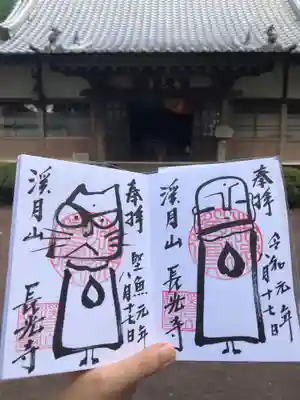 奉拝
令和元年
八月十七日
渓月山
長光寺
奉拝
堅魚元年
八月十七日
渓月山
長光寺